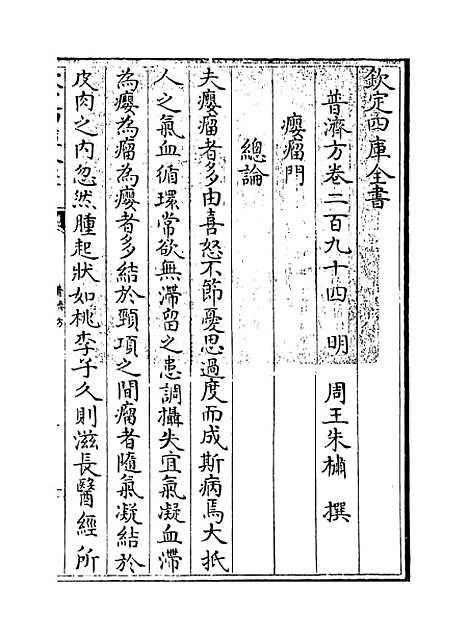 欽定四庫全書
普濟方卷二百九十四　明　周王朱橚　撰
癭瘤門
總論
夫癭瘤者多由喜怒不節憂思過度而成斯病焉大抵
人之氣血循環常欲無滯留之患調攝失宜氣凝血滯
為癭為瘤為癭者多結於頸項之間瘤者隨氣凝結於
皮肉之内忽然腫起狀如桃李子久則滋長醫經所